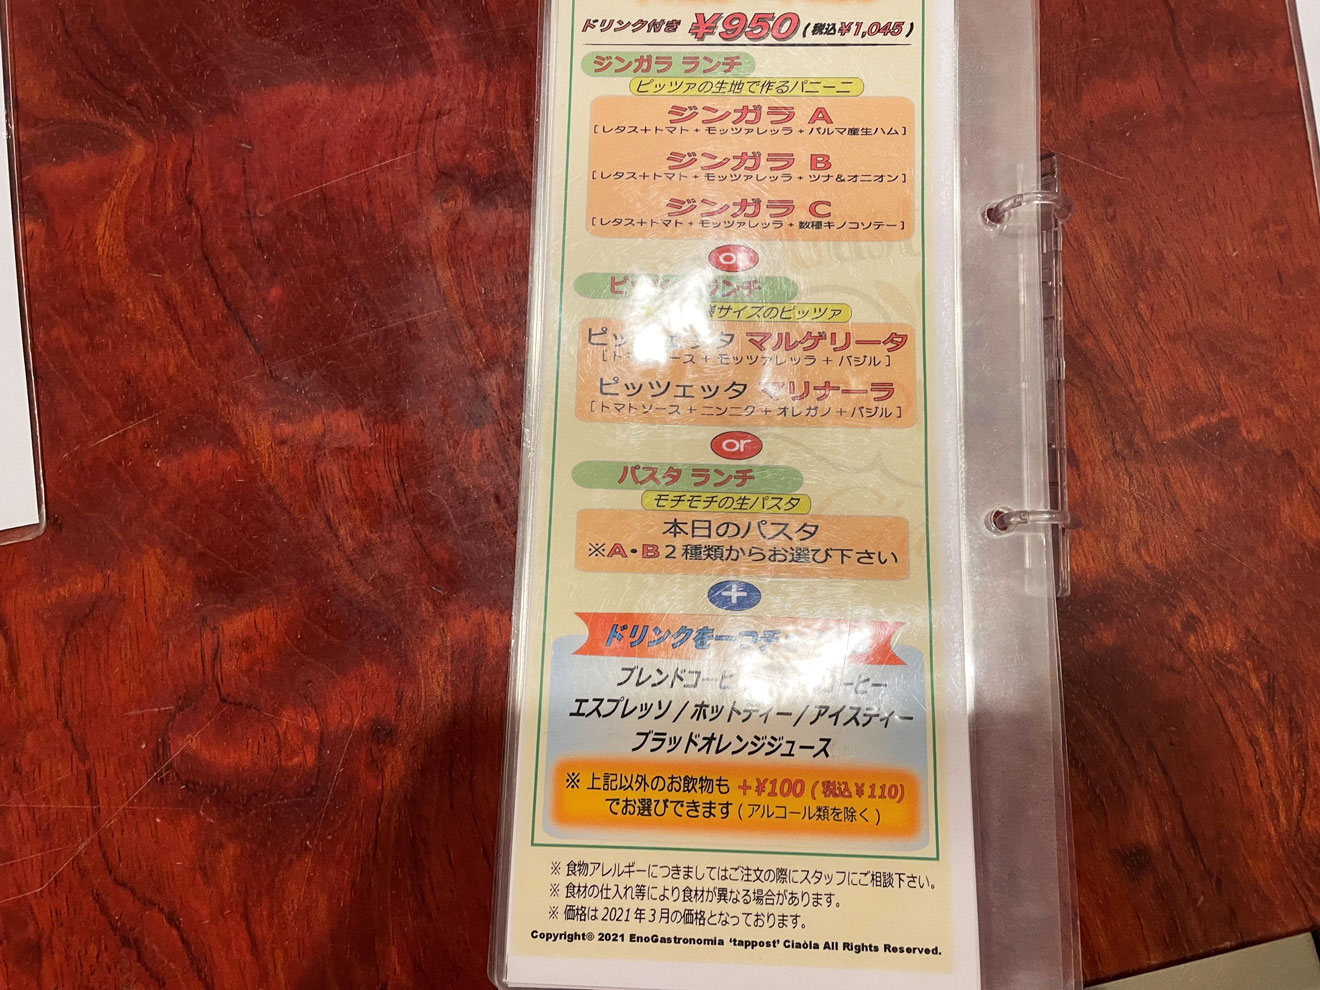 ドリンク付き ¥950 (税込¥1,045)
ジンガラ ランチ
ピッツァの生地で作るパニーニ
ジンガラ A
[ レタス+トマト + モッツァレッラ + パルマ産生ハム ]
ジンガラ B
[ レタス+トマト + モッツァレッラ + ツナ&オニオン ]
ジンガラ C
[ レタス+トマト + モッツァレッラ + 数種キノコソテー ]
or
ランチ
サイズのピッツァ
マルゲリータ
ソース + モッツァレッラ + バジル ]
ピッツェッタ マリナーラ
[ トマトソース + ニンニク + オレガノ + バジル ]
or
パスタ ランチ
モチモチの生パスタ
本日のパスタ
※A・B 2 種類からお選び下さい
+
ドリンクを一つ
ブレンドコーヒ ーヒー
エスプレッソ / ホットティー / アイスティー
ブラッドオレンジジュース
※ 上記以外のお飲物も +¥100 (税込¥110)
でお選びできます ( アルコール類を除く )
※ 食物アレルギーにつきましてはご注文の際にスタッフにご相談下さい。
※ 食材の仕入れ等により食材が異なる場合があります。
※ 価格は 2021 年 3 月の価格となっております。
Copyright© 2021 EnoGastronomia ‘tappost’ Ciaòla All Rights Reserved.